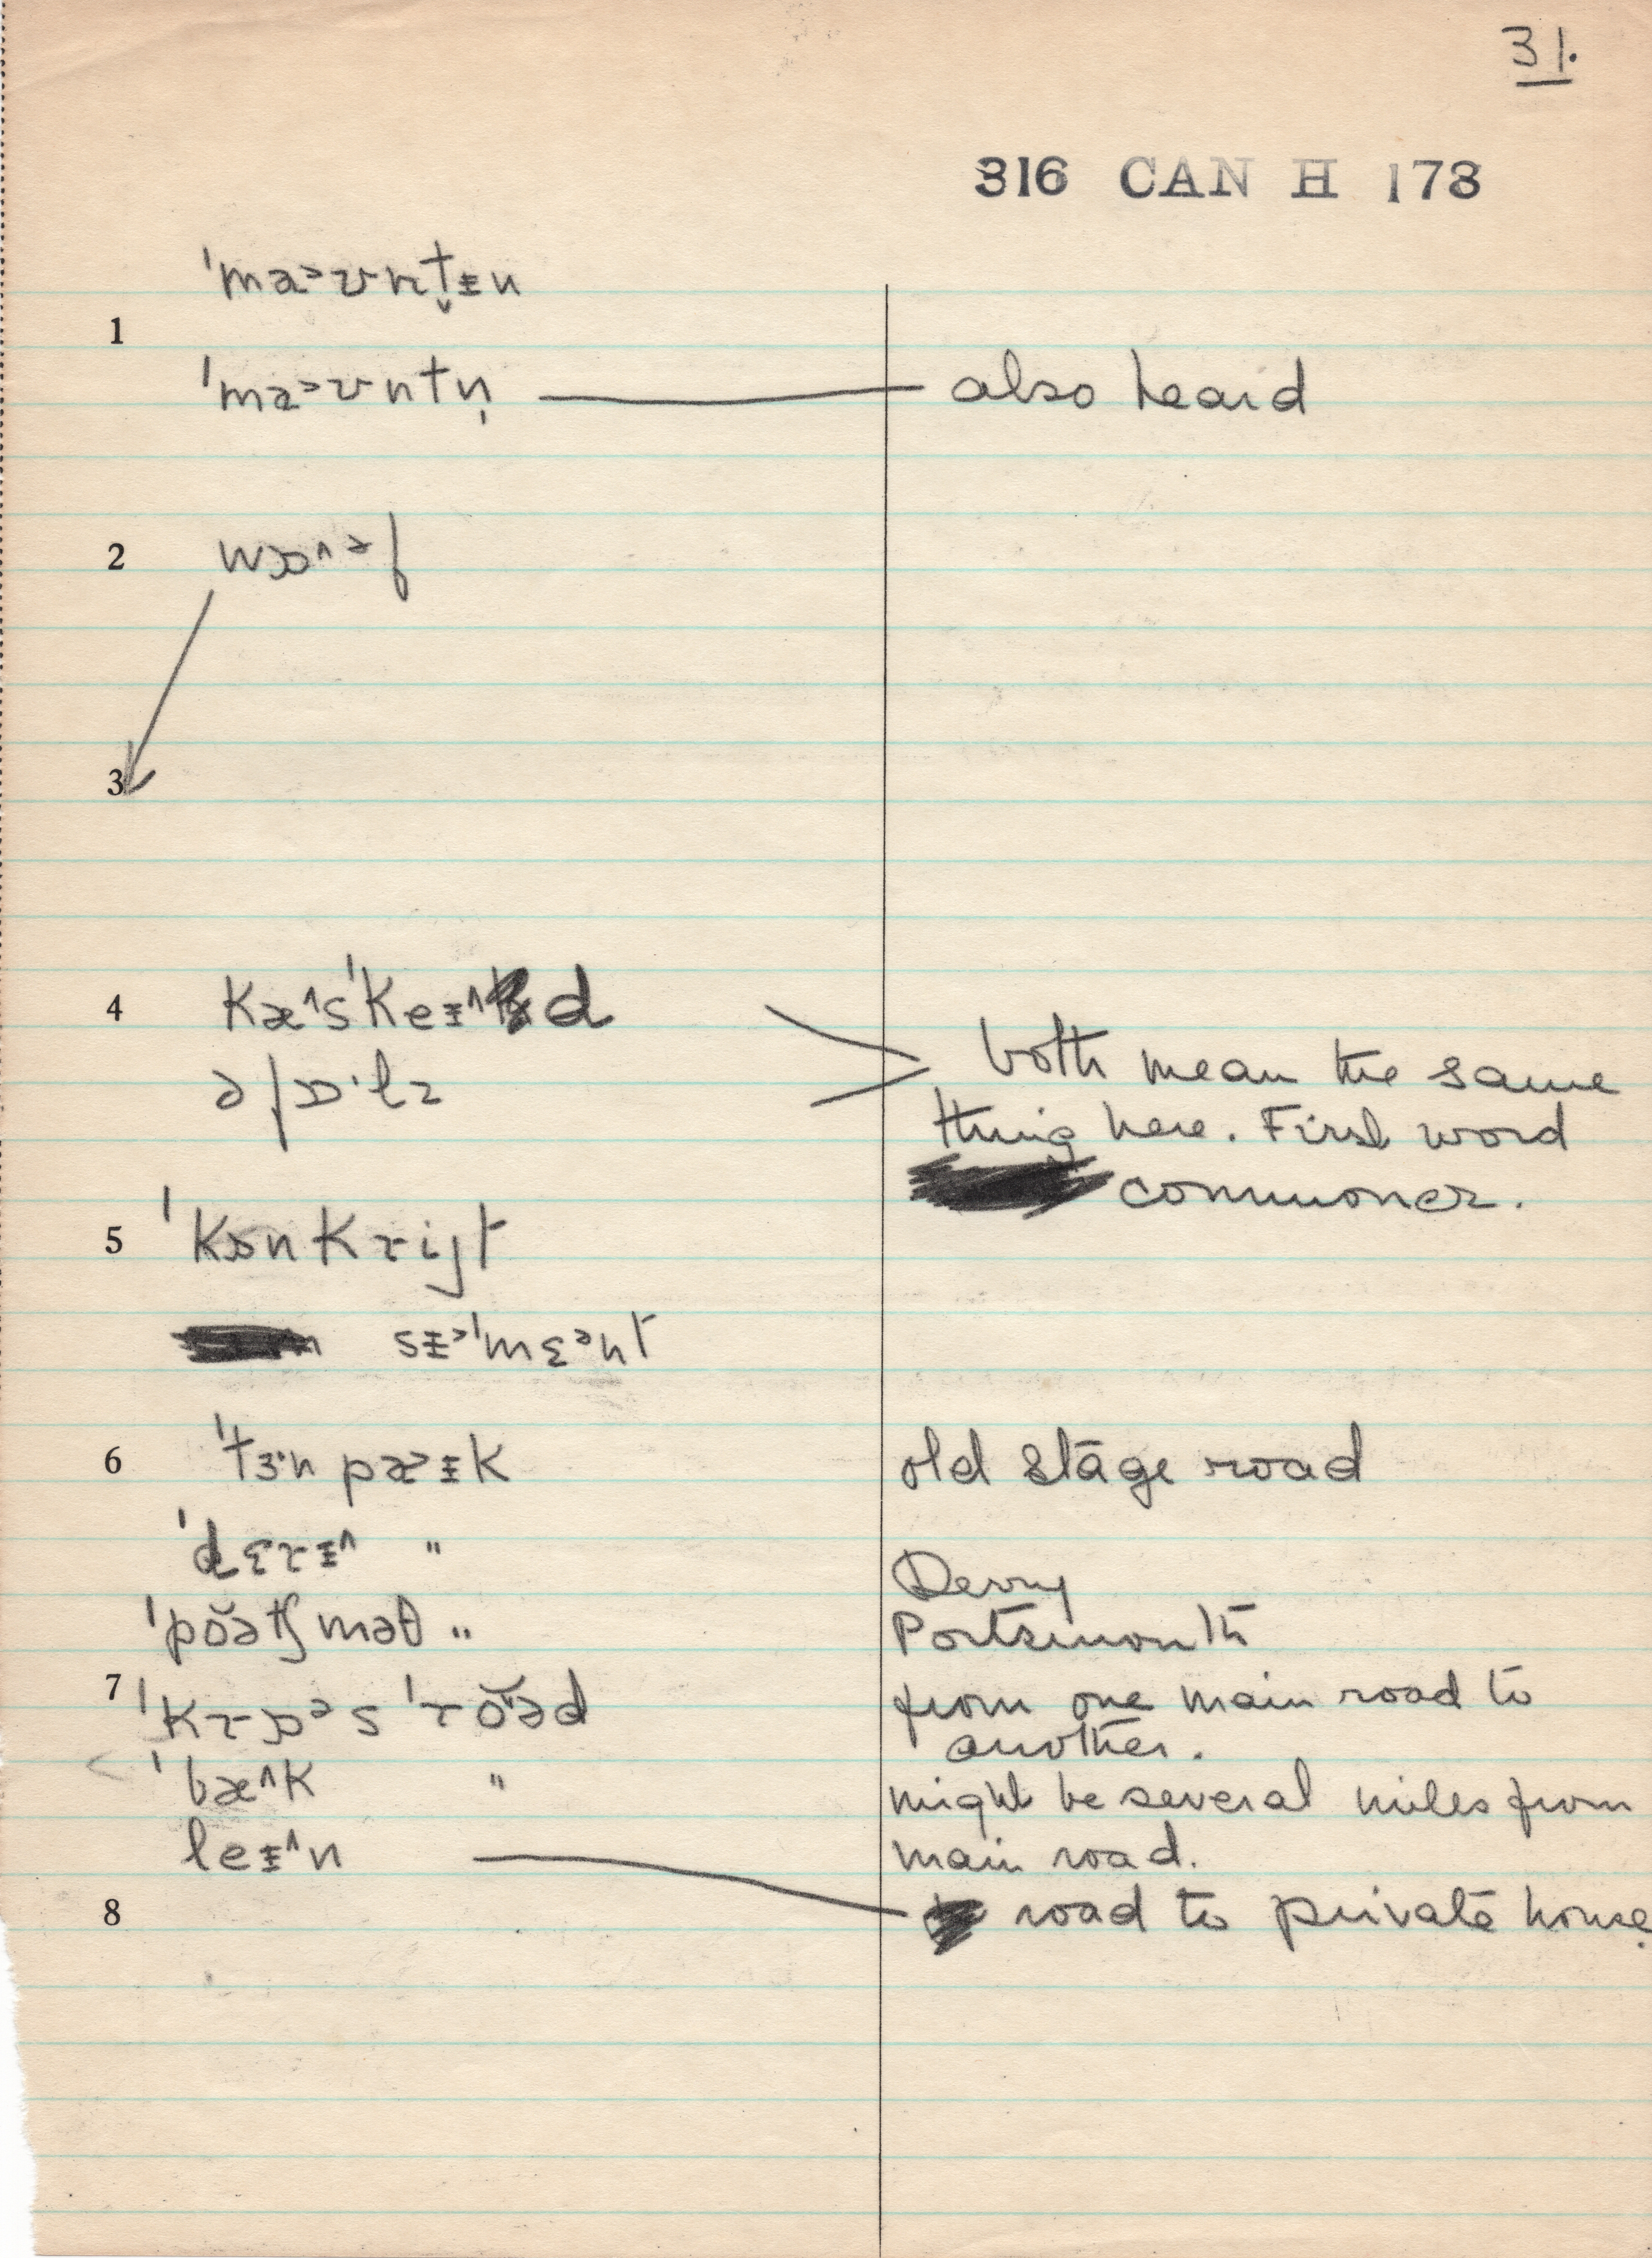 31.
316 CAN H 173
ˈmaᵓʊnt̬ᵻn
1
ˈmaᵓʊntn̩ also heard
2 wɒ^ᵊf
3
4 kæ^sˈkeᵻ^d
əfɒ·lz both mean the same
thing here. First word
commoner.
5 ˈkɒnkrijt
sᵻᵊˈmɛᵊnt
6 ˈtɜ·npæᵊᵻk old stage road
ˈdɛrᵻ^ " Derry
ˈpŏətʃməθ " Portsmouth
7 ˈkrɒᵊs ˈrŏəd from one main road to
another.
ˈbæ^k " might be several miles from
leᵻ^n main road.
8 road to private house.